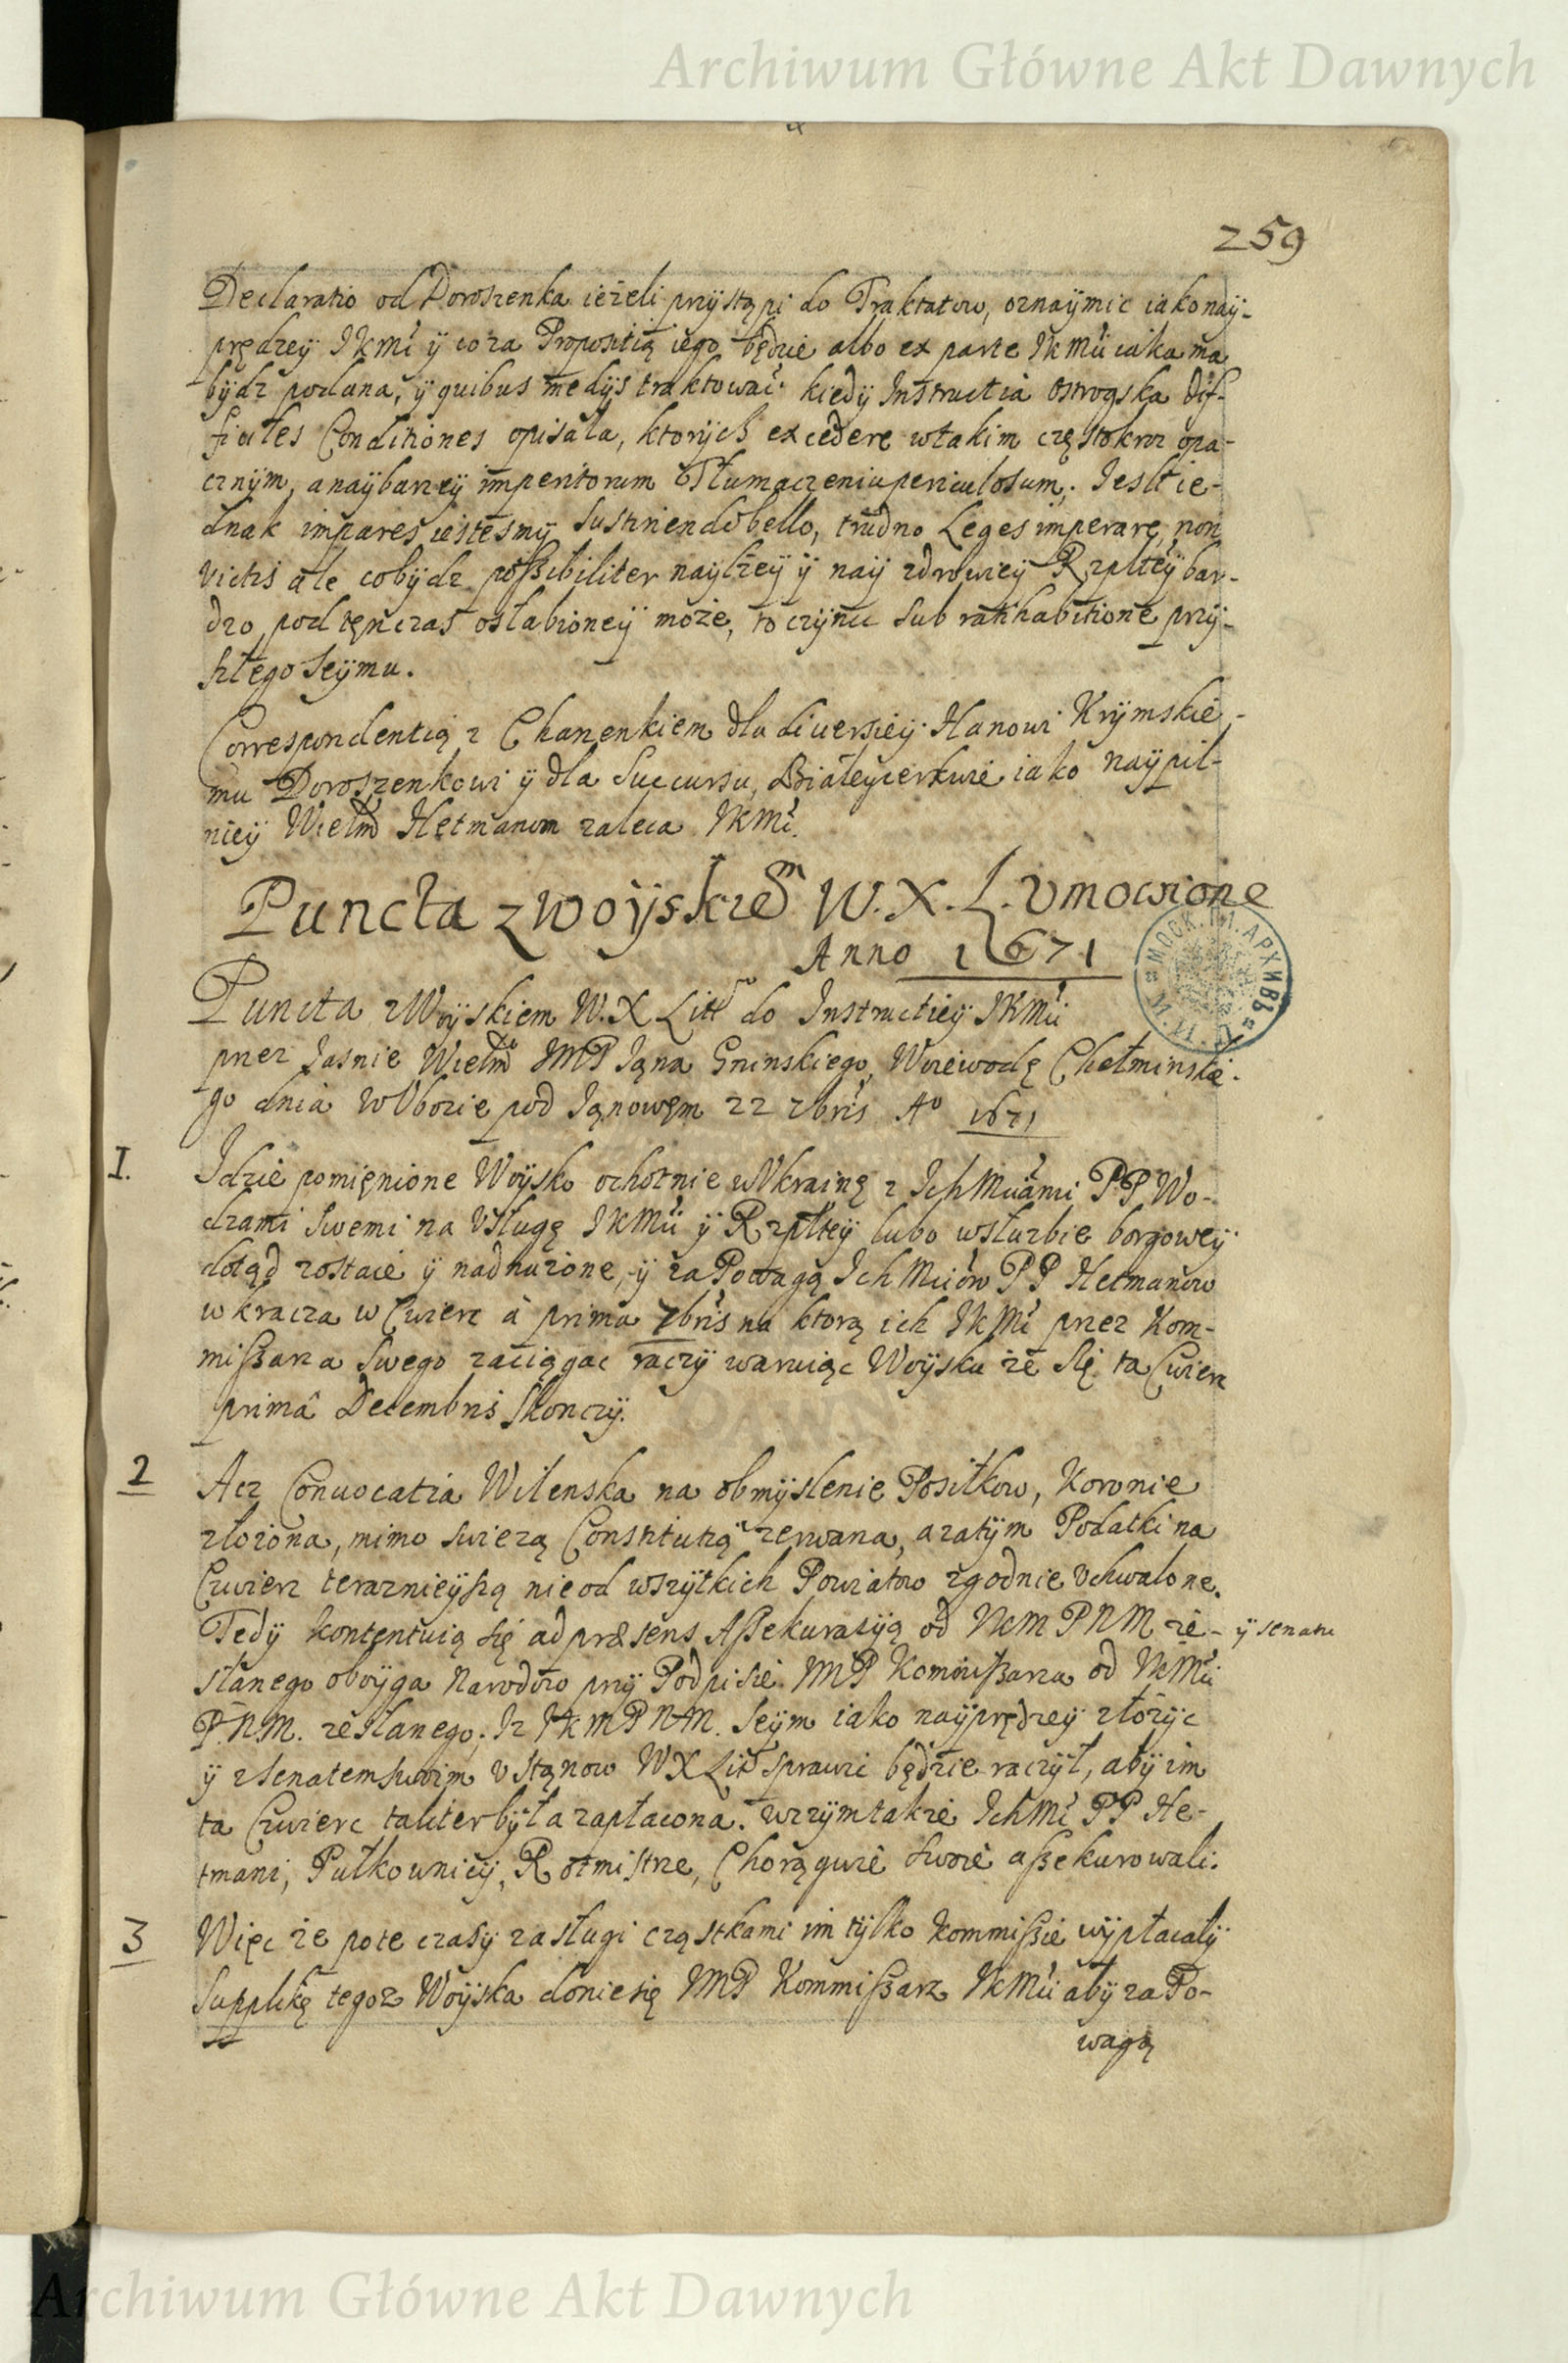 Archiwum Główne Akt Dawnych
259
Declaratio od Doroszenka ieżeli przystąpi do Traktatow, oznaymic iako nay-
prędzey JKMci y co za Propositią iego będzie albo ex parte JKMci iaka ma
bydz podana, y quibus medijs traktowac. kiedy Instructia Ostrogska dif-
ficiles Conditiones opisała, ktorych excedere w takim częstokroc opa-
cznym, a naybarzey imperitorum Tłumaczeniu periculosum. Jeslt ie-
dnak impares iestesmy sustinendo bello, trudno Leges imperare non
victis ale co bydz possibiliter naylżey y nay zdrowiey Rzpltey bar-
dzo pod tęn czas osłabioney może, to czynić sub ratihabitione przy-
szłego Seymu.
Correspondentią z Chanenkiem dla diuersiey Hanowi Krymskie-
mu Doroszenkowi y dla Succursu, Białeycerkwie iako naypil-
niey Wielm Hetmanom zaleca JKMć.
Puncta z woyskiem W.X.L. Vmowione
Anno 1671
Puncta z Woyskiem W.X Litt do Instructiey JKMci
przez Jasnie Wielmo JMP Jąna Gninskiego, Woiewodę Chełminskie-
go dnia w Obozie pod Jąnowęm 22 7bris Ao 1671
I. Idzie pomięnione Woysko ochotnie w Vkrainę z IchMciami PP Wo-
dzami swemi na Vsługę JKMci y Rzpltey lubo w służbie borgowey
dotąd zostaie y nadnużone, y za Powagą IchMciow PP Hetmanow
wkracza w Cwierc à prima 7bris na ktorą ich JKMć przez Kom-
missarza swego zaciągac raczy waruiąc Woysku że się ta Cwierc
primâ Decembris skonczy.
2 Acz Conuocatia Wilenska na obmyslenie Posiłkow, Koronie
złożona, mimo swieżą Constitutią zerwana, a zatym Podatki na
Cwierc teraznieyszą nie od wszytkich Powiatow zgodnie Vchwalone.
Tedy kontentuią się ad præsens Assekuratyą od JKM PNM ze- y senatu
słanego oboyga Narodow przy Podpisie JMP Kommissarza od JKMci
P.N.M. zesłanego; Iż JKM PNM. Seym iako nayprędzey złożyc
y z senatem swoim v Stąnow WXLitt sprawic będzie raczył, aby im
ta Cwierc taliter była zapłacona. w czym także IchMć PP He-
tmani, Pułkownicy, Rotmistrze, Chorągwie swoie assekurowali.
3 Więc że po te czasy zasługi cząstkami im tylko kommissie wypłacały
Supplikę tegoz Woyska doniesię JMP Kommissarz JKMci aby za Po-
wagą
Archiwum Główne Akt Dawnych